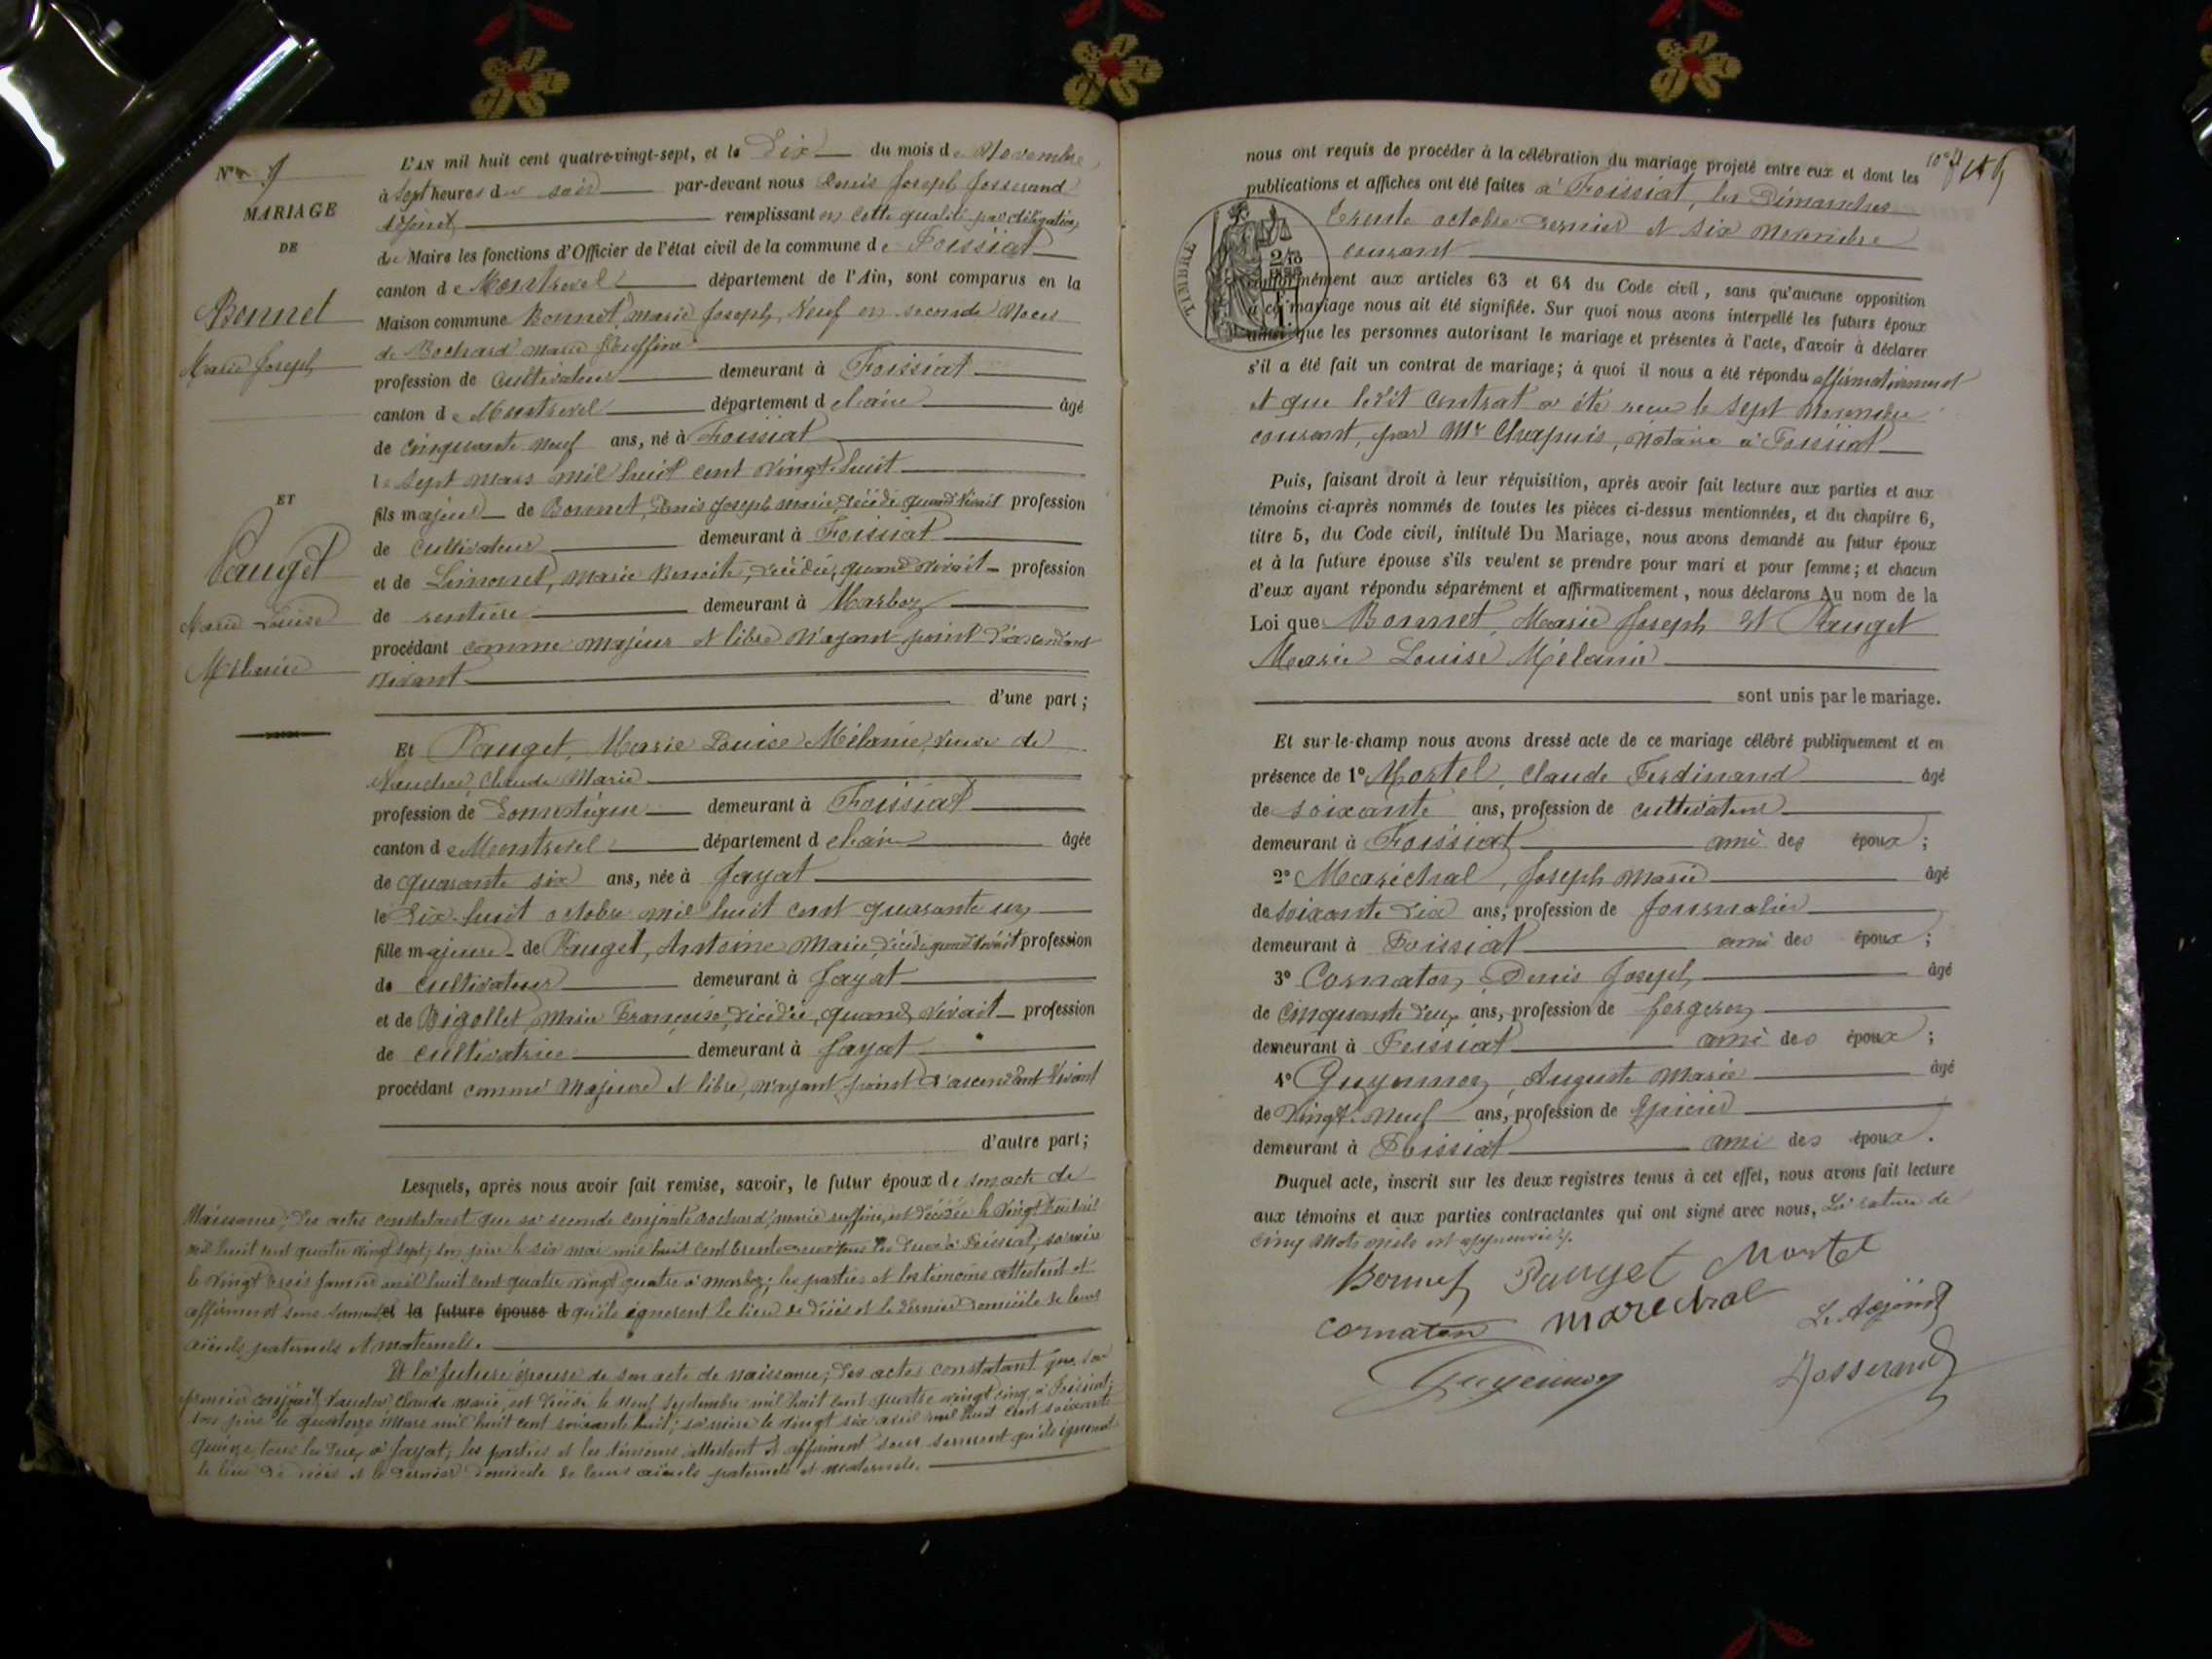 MARIAGE
DE
Bonnet
Marie Joseph
ET
Pauget
Marie Louise
Mélanie
L'AN mil huit cent quatre-vingt-sept, et le Dix du mois de Novembre
à Sept heures du soir par-devant nous Denis Joseph Josserand
Adjoint remplissant en cette qualité par délégation
du Maire les fonctions d'Officier de l'état civil de la commune de Foissiat
canton de Montrevel département de l'Ain, sont comparus en la
Maison commune Bonnet, Marie Joseph, Veuf en seconde Noces
de Bochard Marie Reuffine
profession de cultivateur demeurant à Foissiat
canton de Montrevel département de l'ain âgé
de cinquante neuf ans, né à Foissiat
le sept mars mil huit cent vingt huit
fils majeur de Bonnet, Denis Joseph Marie, décédé quand vivait profession
de cultivateur demeurant à Foissiat
et de Limonet, Marie Benoite, décédée, quand vivait profession
de rentière demeurant à Marboz
procédant comme majeur et libre n'ayant point d'ascendant
vivant
d'une part ;
Et Pauget, Marie Louise Mélanie, veuve de
Vaudroi, Claude Marie
profession de Domestique demeurant à Foissiat
canton de Montrevel département de l'ain âgée
de quarante six ans, née à Jayat
le Dix-huit octobre mil huit cent quarante un
fille majeure de Pauget, Antoine Marie, décédé quand vivait profession
de cultivateur demeurant à Jayat
et de Bigollet, Marie Françoise, décédée, quand vivait profession
de cultivatrice demeurant à Jayat
procédant comme Majeure et libre, n'ayant point d'ascendant vivant
d'autre part ;
Lesquels, après nous avoir fait remise, savoir, le futur époux de son acte de
Naissance ; des actes constatant que sa seconde conjointe Bochard, marie ruffine, est décédée le vingt huit
mil huit cent quatre vingt sept, son père le six mai mil huit cent trente tous les deux à Foissiat ; sa mère
le vingt trois Janvier mil huit cent quatre vingt quatre à Marboz ; les parties et les témoins attestent et
affirment sous serment et la future épouse d qu'ils ignorent le lieu de décès et le dernier domicile de leurs
aïeuls paternels et maternels.
Et la future épouse de son acte de naissance ; des actes constatant que son
premier conjoint, Claude Marie, est décédé le neuf septembre mil huit cent quatre vingt cinq à Foissiat ;
son père le quatorze mars mil huit cent soixante huit ; sa mère le vingt six avril mil huit cent soixante
quinze, tous les deux à Jayat ; les parties et les témoins attestent et affirment sous serment qu'ils ignorent
le lieu de décès et le dernier domicile de leurs aïeuls paternels et maternels.
nous ont requis de procéder à la célébration du mariage projeté entre eux et dont les
publications et affiches ont été faites à Foissiat, les Dimanches
trente octobre dernier et six novembre
courant
TIMBRE
conformément aux articles 63 et 64 du Code civil, sans qu'aucune opposition
à ce mariage nous ait été signifiée. Sur quoi nous avons interpellé les futurs époux
ainsi que les personnes autorisant le mariage et présentes à l'acte, d'avoir à déclarer
s'il a été fait un contrat de mariage ; à quoi il nous a été répondu affirmativement
et que ledit contrat a été reçu le sept novembre
courant, par Mr Chapuis, notaire à Foissiat
Puis, faisant droit à leur réquisition, après avoir fait lecture aux parties et aux
témoins ci-après nommés de toutes les pièces ci-dessus mentionnées, et du chapitre 6,
titre 5, du Code civil, intitulé Du Mariage, nous avons demandé au futur époux
et à la future épouse s'ils veulent se prendre pour mari et pour femme ; et chacun
d'eux ayant répondu séparément et affirmativement, nous déclarons Au nom de la
Loi que Bonnet, Marie Joseph et Pauget
Marie Louise Mélanie
sont unis par le mariage.
Et sur-le-champ nous avons dressé acte de ce mariage célébré publiquement et en
présence de 1° Mortel, Claude Ferdinand âgé
de soixante ans, profession de cultivateur
demeurant à Foissiat ami des époux ;
2° Maréchal, Joseph Marie âgé
de soixante dix ans, profession de Journalier
demeurant à Foissiat ami des époux ;
3° Cornaton, Denis Joseph âgé
de cinquante deux ans, profession de forgeron
demeurant à Foissiat ami des époux ;
4° Guyennon, Auguste Marie âgé
de vingt neuf ans, profession de Epicier
demeurant à Foissiat ami des époux.
Duquel acte, inscrit sur les deux registres tenus à cet effet, nous avons fait lecture
aux témoins et aux parties contractantes qui ont signé avec nous, La rature de
cinq mots nuls est approuvée.
Bonnet Pauget Mortel
Cornaton marechal L'Adjoint
Guyennon Josserand